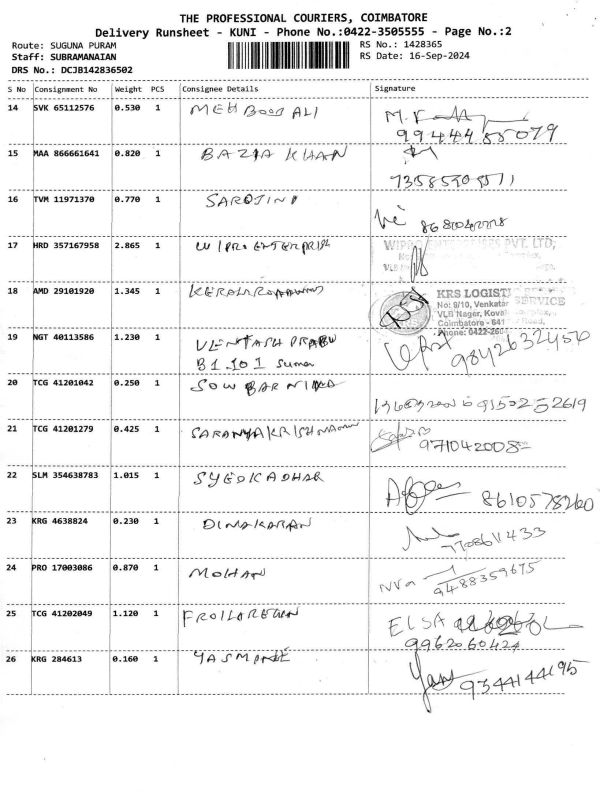 THE PROFESSIONAL COURIERS, COIMBATORE
Delivery Runsheet - KUNI - Phone No.:0422-3505555 - Page No.:2
Route: SUGUNA PURAM RS No.: 1428365
Staff: SUBRAMANAIAN RS Date: 16-Sep-2024
DRS No.: DCJB142836502
S No Consignment No Weight PCS Consignee Details Signature
14 SVK 65112576 0.530 1 MEHBOOB ALI
9944455079
15 MAA 866661641 0.820 1 BAZIA KHAN
16 TVM 11971370 0.770 1 SAROJINI
17 HRD 357167958 2.865 1 WIPRO ENTERPRISE
WIPRO ENTERPRISES PVT. LTD,
18 AMD 29101920 1.345 1
KRS LOGISTIC SERVICE
No: 9/10, Venkatar
VLB Nagar, Kovai
Coimbatore - 641
Phone: 0422-2604
19 NGT 40113586 1.230 1 VENTASH PRABU
9842632450
B1 101
20 TCG 41201042 0.250 1
9150252619
21 TCG 41201279 0.425 1 SARANYAKRISHNA
971042008
22 SLM 354638783 1.015 1 SYEDKADHAR
8610578260
23 KRG 4638824 0.230 1 DINAKARAN
24 PRO 17003086 0.870 1 MOHAN
9488359675
25 TCG 41202049 1.120 1
ELSA
9962060424
26 KRG 284613 0.160 1
9344144195